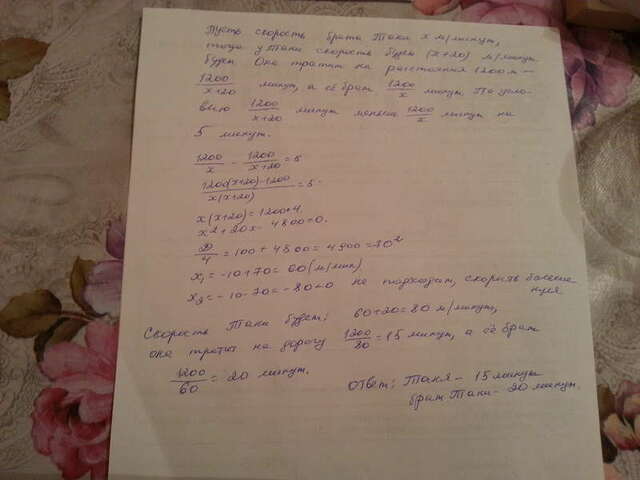 Пусть скорость брата Тани x м/минут,
тогда у Тани скорость будет (x+20) м/минут.
Будет Она тратит на расстояния 1200 м —
1200/x+20 минут, а её брат 1200/x минут. По усло-
вию 1200/x+20 минут меньше 1200/x минут на
5 минут.
1200/x - 1200/x+20 = 5
1200(x+20)-1200/x(x+20) = 5
x(x+20) = 1200+4
x²+20x - 4800=0.
D/4 = 100 + 4800 = 4900 = 70²
x₁ = -10+70 = 60 (м/мин)
x₂ = -10-70 = -80<0 не подходит, скорость больше
нуля
Скорость Тани будет: 60+20=80 м/минут,
она тратит на дорогу 1200/80 = 15 минут, а её брат
1200/60 = 20 минут.
Ответ: Таня - 15 минут
брат Тани - 20 минут.